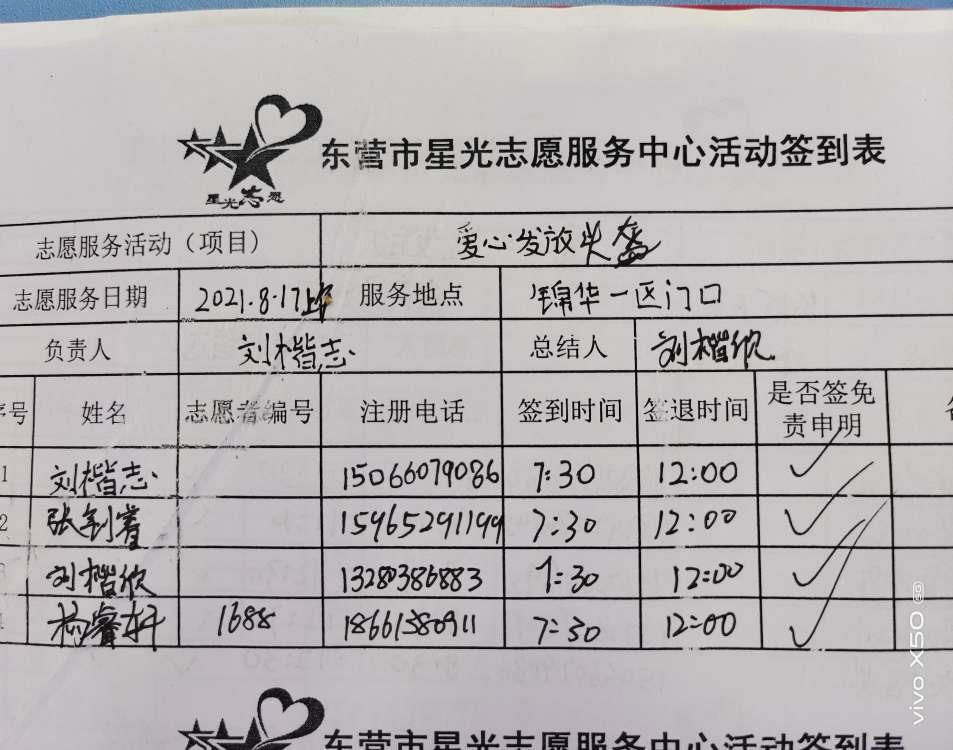 星光志愿
东营市星光志愿服务中心活动签到表
志愿服务活动（项目） 爱心发放头盔
志愿服务日期 2021.8.17上午 服务地点 锦华一区门口
负责人 刘楷志 总结人 刘楷欣
序号 姓名 志愿者编号 注册电话 签到时间 签退时间 是否签免责申明
1 刘楷志 15066079086 7:30 12:00 ✓
2 张钊睿 15965291199 7:30 12:00 ✓
3 刘楷欣 13280386883 7:30 12:00 ✓
4 杨睿轩 1688 18661380911 7:30 12:00 ✓
东营市星光志愿服务中心活动签到表
vivo X50